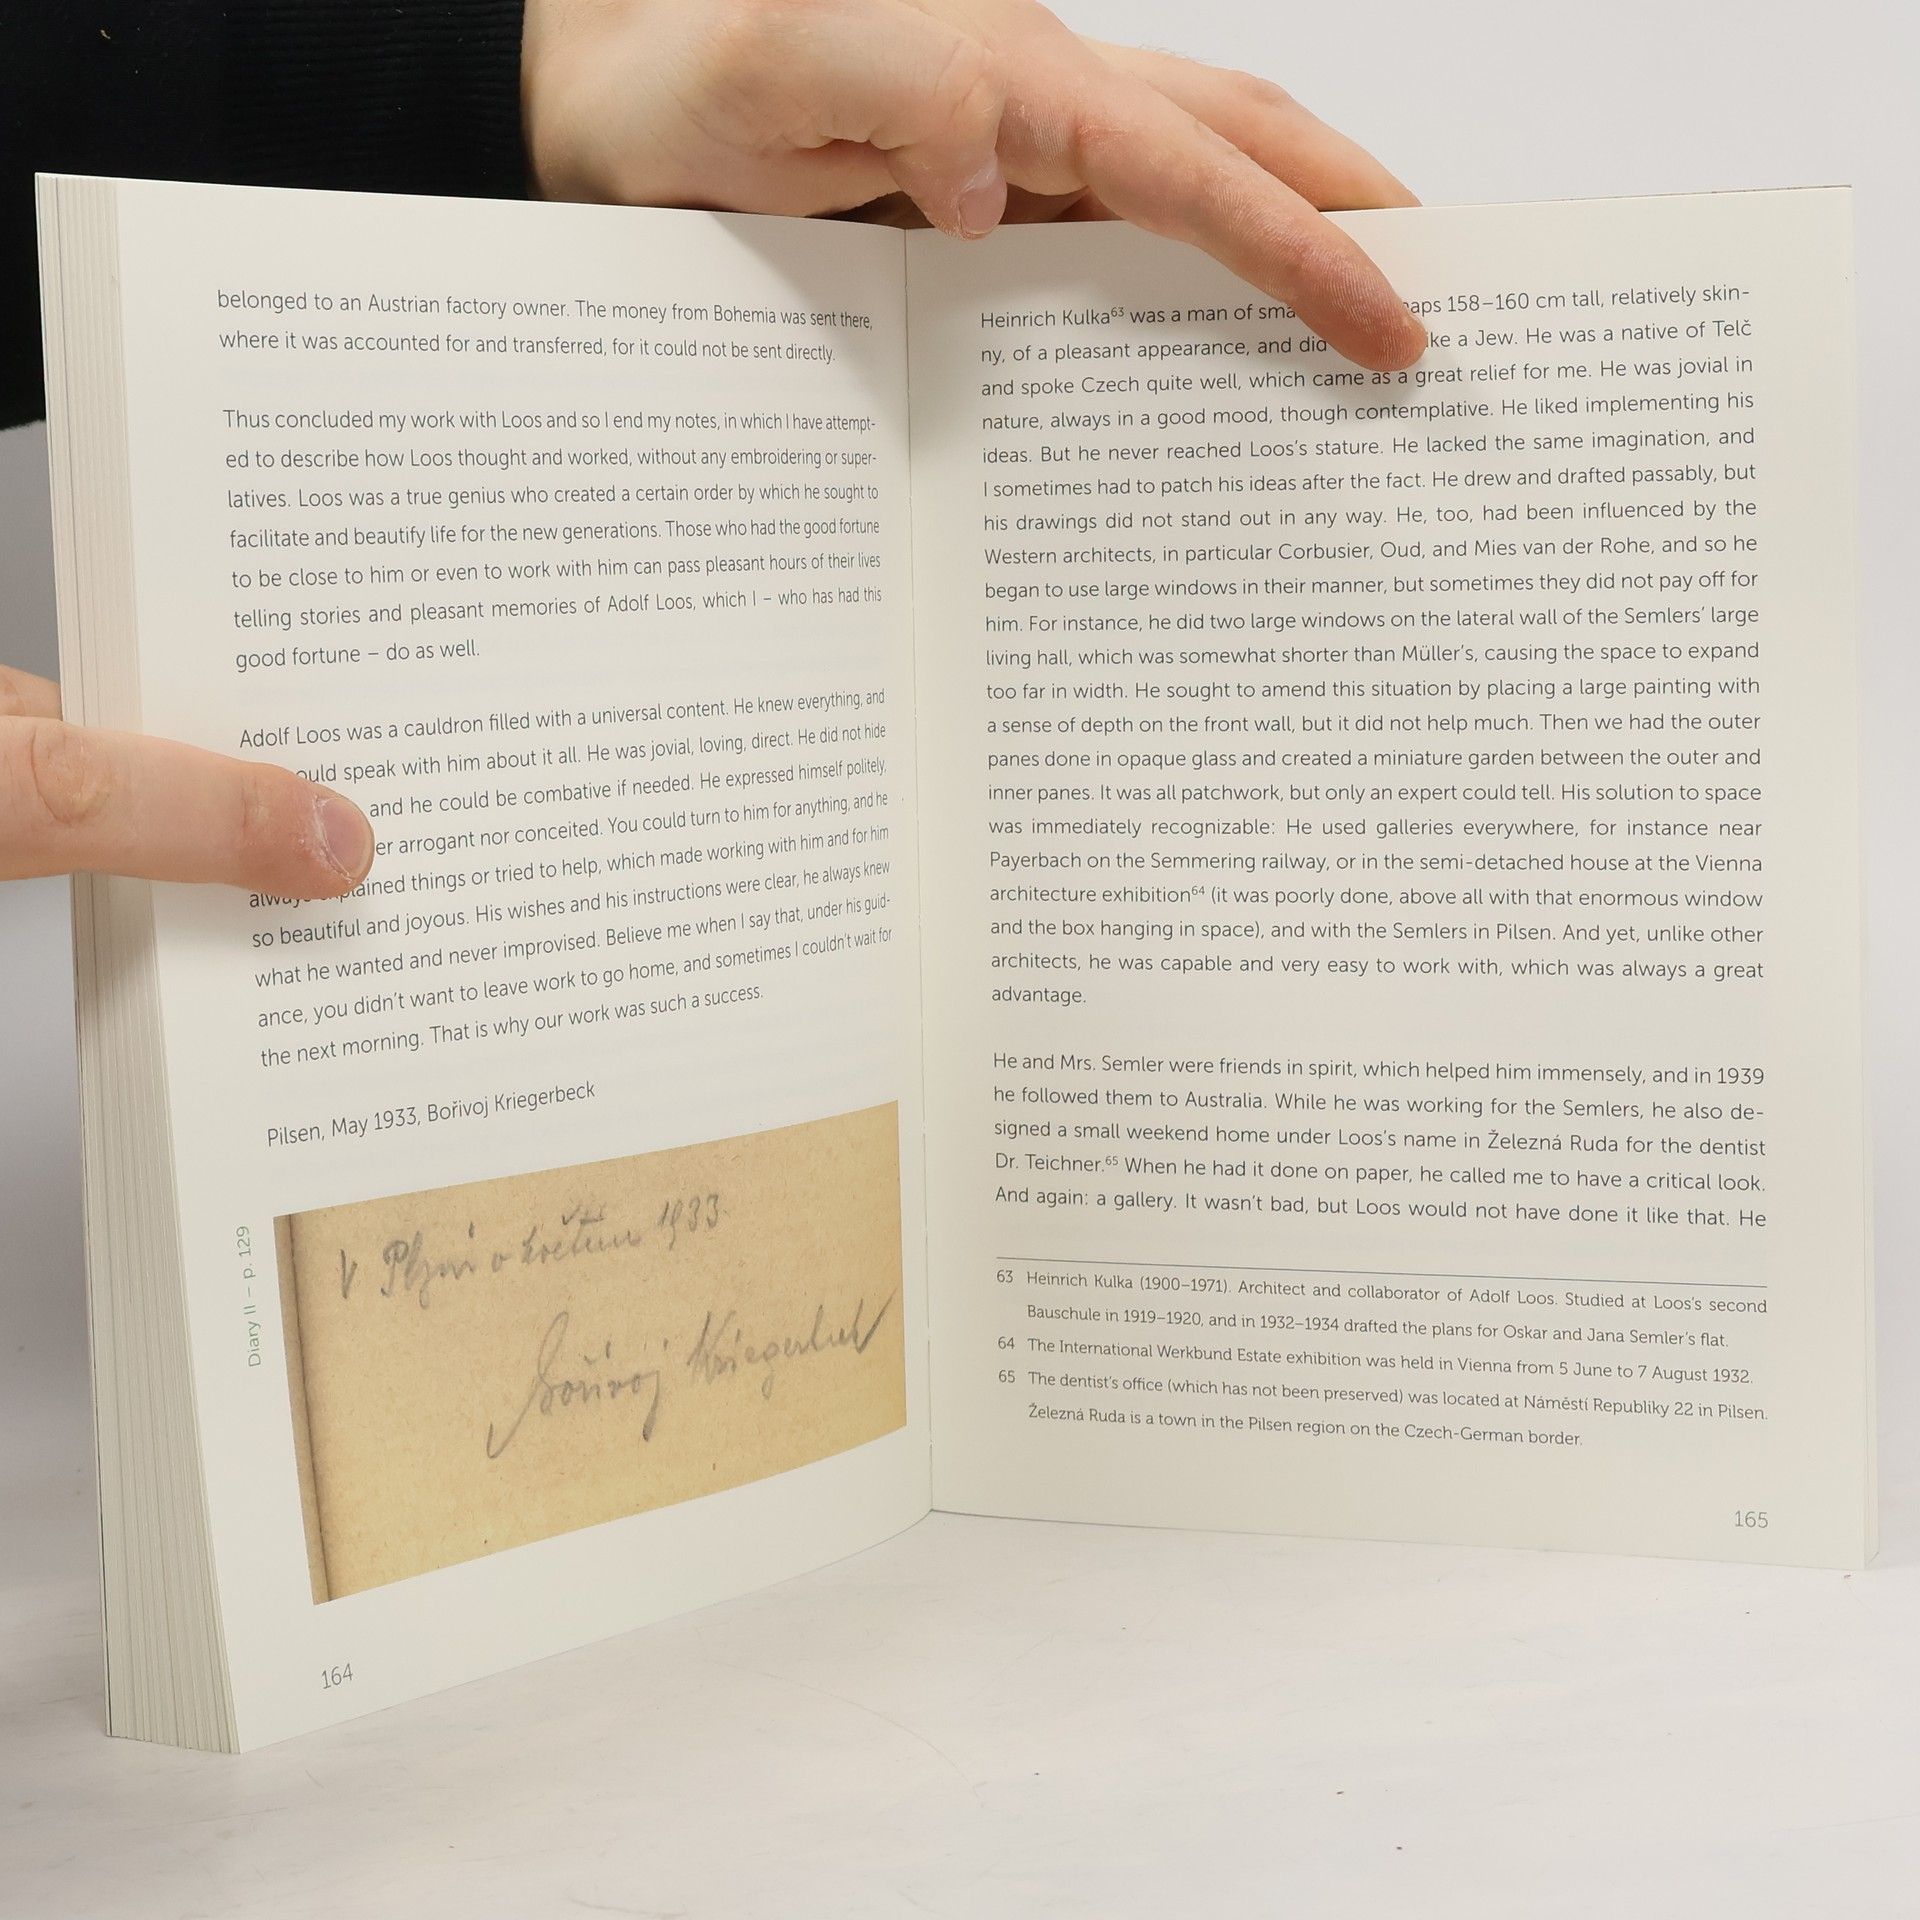 belonged to an Austrian factory owner. The money from Bohemia was sent there,
where it was accounted for and transferred, for it could not be sent directly.
Thus concluded my work with Loos and so I end my notes, in which I have attempt-
ed to describe how Loos thought and worked, without any embroidering or super-
latives. Loos was a true genius who created a certain order by which he sought to
facilitate and beautify life for the new generations. Those who had the good fortune
to be close to him or even to work with him can pass pleasant hours of their lives
telling stories and pleasant memories of Adolf Loos, which I – who has had this
good fortune – do as well.
Adolf Loos was a cauldron filled with a universal content. He knew everything, and
speak with him about it all. He was jovial, loving, direct. He did not hide
and he could be combative if needed. He expressed himself politely,
arrogant nor conceited. You could turn to him for anything, and he
always explained things or tried to help, which made working with him and for him
so beautiful and joyous. His wishes and his instructions were clear, he always knew
what he wanted and never improvised. Believe me when I say that, under his guid-
ance, you didn't want to leave work to go home, and sometimes I couldn't wait for
the next morning. That is why our work was such a success.
Pilsen, May 1933, Bořivoj Kriegerbeck
Diary II – p. 129
V Plzni v květnu 1933.
Bořivoj Kriegerbeck
164
Heinrich Kulka⁶³ was a man of 158–160 cm tall, relatively skin-
ny, of a pleasant appearance, and did a Jew. He was a native of Telč
and spoke Czech quite well, which came as a great relief for me. He was jovial in
nature, always in a good mood, though contemplative. He liked implementing his
ideas. But he never reached Loos's stature. He lacked the same imagination, and
I sometimes had to patch his ideas after the fact. He drew and drafted passably, but
his drawings did not stand out in any way. He, too, had been influenced by the
Western architects, in particular Corbusier, Oud, and Mies van der Rohe, and so he
began to use large windows in their manner, but sometimes they did not pay off for
him. For instance, he did two large windows on the lateral wall of the Semlers' large
living hall, which was somewhat shorter than Müller's, causing the space to expand
too far in width. He sought to amend this situation by placing a large painting with
a sense of depth on the front wall, but it did not help much. Then we had the outer
panes done in opaque glass and created a miniature garden between the outer and
inner panes. It was all patchwork, but only an expert could tell. His solution to space
was immediately recognizable: He used galleries everywhere, for instance near
Payerbach on the Semmering railway, or in the semi-detached house at the Vienna
architecture exhibition⁶⁴ (it was poorly done, above all with that enormous window
and the box hanging in space), and with the Semlers in Pilsen. And yet, unlike other
architects, he was capable and very easy to work with, which was always a great
advantage.
He and Mrs. Semler were friends in spirit, which helped him immensely, and in 1939
he followed them to Australia. While he was working for the Semlers, he also de-
signed a small weekend home under Loos's name in Železná Ruda for the dentist
Dr. Teichner.⁶⁵ When he had it done on paper, he called me to have a critical look.
And again: a gallery. It wasn't bad, but Loos would not have done it like that. He
63 Heinrich Kulka (1900–1971). Architect and collaborator of Adolf Loos. Studied at Loos's second
Bauschule in 1919–1920, and in 1932–1934 drafted the plans for Oskar and Jana Semler's flat.
64 The International Werkbund Estate exhibition was held in Vienna from 5 June to 7 August 1932.
65 The dentist's office (which has not been preserved) was located at Náměstí Republiky 22 in Pilsen.
Železná Ruda is a town in the Pilsen region on the Czech-German border.
165